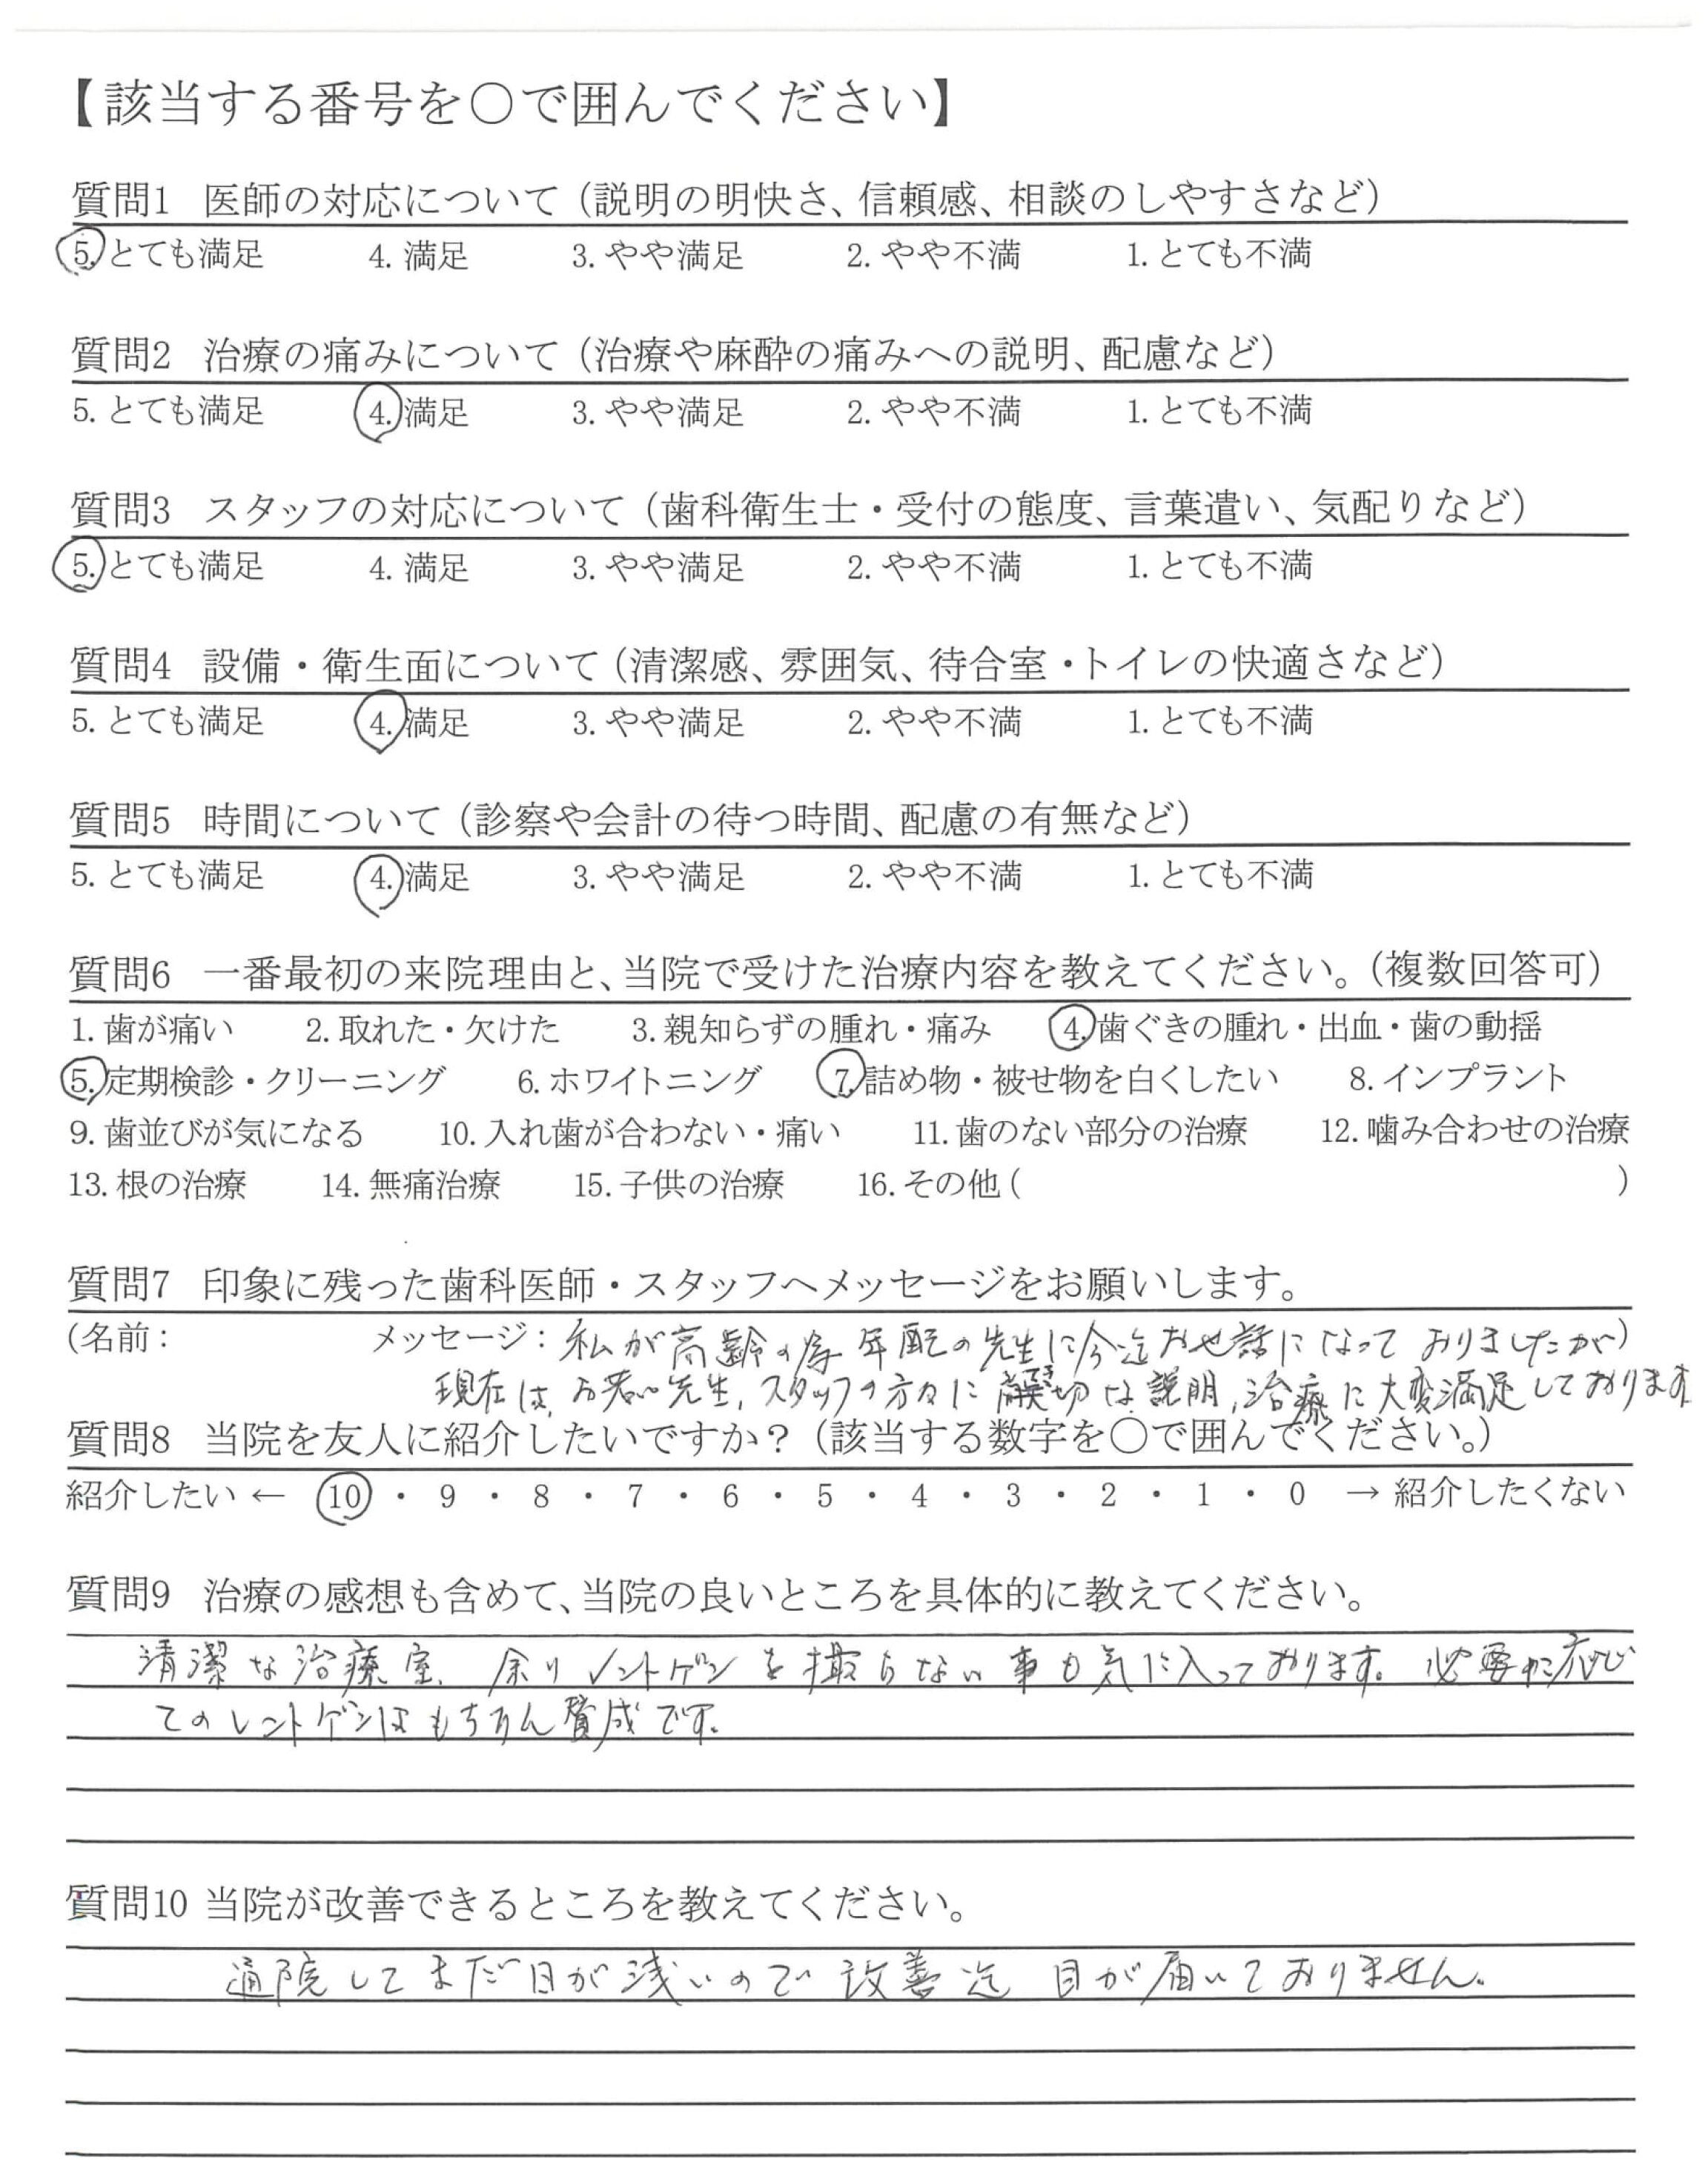 【該当する番号を〇で囲んでください】
質問1 医師の対応について（説明の明快さ、信頼感、相談のしやすさなど）
5. とても満足 4. 満足 3. やや満足 2. やや不満 1. とても不満
質問2 治療の痛みについて（治療や麻酔の痛みへの説明、配慮など）
5. とても満足 4. 満足 3. やや満足 2. やや不満 1. とても不満
質問3 スタッフの対応について（歯科衛生士・受付の態度、言葉遣い、気配りなど）
5. とても満足 4. 満足 3. やや満足 2. やや不満 1. とても不満
質問4 設備・衛生面について（清潔感、雰囲気、待合室・トイレの快適さなど）
5. とても満足 4. 満足 3. やや満足 2. やや不満 1. とても不満
質問5 時間について（診察や会計の待つ時間、配慮の有無など）
5. とても満足 4. 満足 3. やや満足 2. やや不満 1. とても不満
質問6 一番最初の来院理由と、当院で受けた治療内容を教えてください。（複数回答可）
1. 歯が痛い 2. 取れた・欠けた 3. 親知らずの腫れ・痛み 4. 歯ぐきの腫れ・出血・歯の動揺
5. 定期検診・クリーニング 6. ホワイトニング 7. 詰め物・被せ物を白くしたい 8. インプラント
9. 歯並びが気になる 10. 入れ歯が合わない・痛い 11. 歯のない部分の治療 12. 噛み合わせの治療
13. 根の治療 14. 無痛治療 15. 子供の治療 16. その他（ ）
質問7 印象に残った歯科医師・スタッフへメッセージをお願いします。
（名前： メッセージ：私が高齢の為年配の先生に今迄お世話になっておりましたが）
現在は、お若い先生、スタッフの方々に 切な説明、治療に大変満足しております
質問8 当院を友人に紹介したいですか？（該当する数字を〇で囲んでください。）
紹介したい ← 10 ・ 9 ・ 8 ・ 7 ・ 6 ・ 5 ・ 4 ・ 3 ・ 2 ・ 1 ・ 0 → 紹介したくない
質問9 治療の感想も含めて、当院の良いところを具体的に教えてください。
清潔な治療室、余りレントゲンを撮らない事も気に入っております。必要に応じ
てのレントゲンはもちろん賛成です。
質問10 当院が改善できるところを教えてください。
通院してまだ日が浅いので改善迄 目が届いておりません。